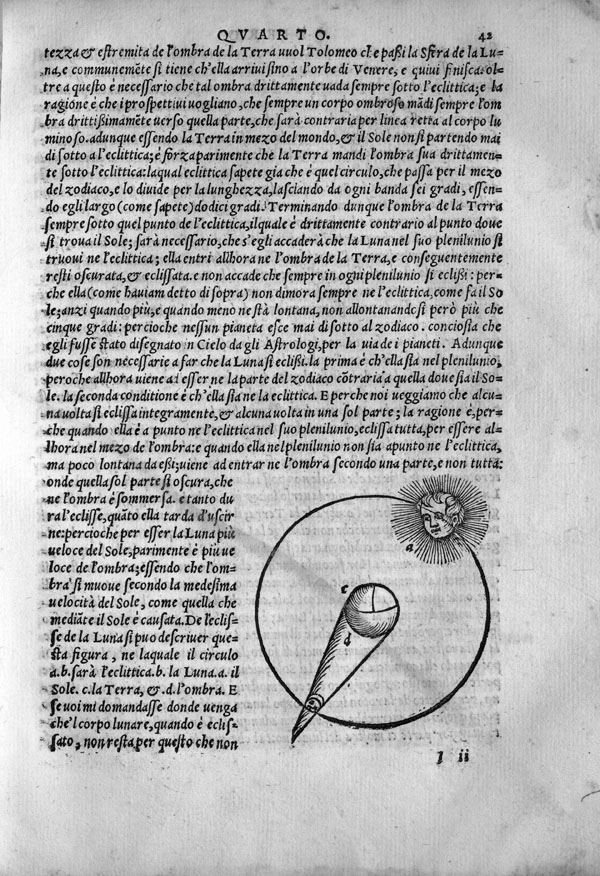 QVARTO. 42
tezza & estremita de l'ombra de la Terra uuol Tolomeo che paßi la Sfera de la Lu=
na, e communemẽte si tiene ch'ella arrivi sino a l'orbe di Venere, e quiui finisca. ol=
tre a questo è necessario che tal ombra drittamente uada sempre sotto l'eclittica; e la
ragione è che i prospettiui uogliano, che sempre un corpo ombroso mãdi sempre l'om
bra drittißimamẽte uerso quella parte, che sarà contraria per linea retta al corpo lu
minoso. adunque essendo la Terra in mezo del mondo, & il Sole non si partendo mai
di sotto a l'eclittica; è forza parimente che la Terra mandi l'ombra sua drittamen=
te sotto l'eclittica: la qual eclittica sapete gia che è quel circulo, che passa per il mezo
del zodiaco, e lo diuide per la lunghezza, lasciando da ogni banda sei gradi, essen=
do egli largo (come sapete) dodici gradi. Terminando dunque l'ombra de la Terra
sempre sotto quel punto de l'eclittica, il quale è drittamente contrario al punto doue
si troua il Sole; sarà necessario, che s'egli accaderà che la Luna nel suo plenilunio si
truoui ne l'eclittica; ella entri allhora ne l'ombra de la Terra, e conseguentemente
resti oscurata, & eclissata. e non accade che sempre in ogni plenilunio si eclißi: per=
che ella (come hauiam detto di sopra) non dimora sempre ne l'eclittica, come fa il So
le; anzi quando più, e quando meno ne stà lontana, non allontanandosi però più che
cinque gradi: percioche nessun pianeta esce mai di sotto al zodiaco. conciosia che
egli fusse stato disegnato in Cielo da gli Astrologi, per la uia de i pianeti. Adunque
due cose son necessarie a far che la Luna si eclißi. la prima è ch'ella sia nel plenilunio,
peroche allhora uiene ad esser ne la parte del zodiaco cõtraria a quella doue sia il So=
le. la seconda conditione è ch'ella sia ne la eclittica. E perche noi ueggiamo che alcu=
na uolta si eclissa integramente, & alcuna uolta in una sol parte; la ragione è, per=
che quando ella è a punto ne l'eclittica nel suo plenilunio, eclissa tutta, per essere al=
lhora nel mezo de l'ombra: e quando ella nel plenilunio non sia apunto ne l'eclittica,
ma poco lontana da eßi; uiene ad entrar ne l'ombra secondo una parte, e non tutta:
onde quella sol parte si oscura, che
ne l'ombra è sommersa. e tanto du
ra l'eclisse, quãto ella tarda d'uscir
ne: percioche per esser la Luna più
ueloce del Sole, parimente è più ue
loce de l'ombra; essendo che l'om=
bra si muoue secondo la medesima
uelocità del Sole, come quella che
mediãte il Sole è causata. De l'eclis=
se de la Luna si puo descriuer que=
sta figura, ne laquale il circulo
a.b. sarà l'eclittica. b. la Luna. a. il
Sole. c. la Terra, &. d. l'ombra. E
se uoi mi domandasse donde uenga
che'l corpo lunare, quando è eclis=
sato, non resta per questo che non
a
c
d
l ii